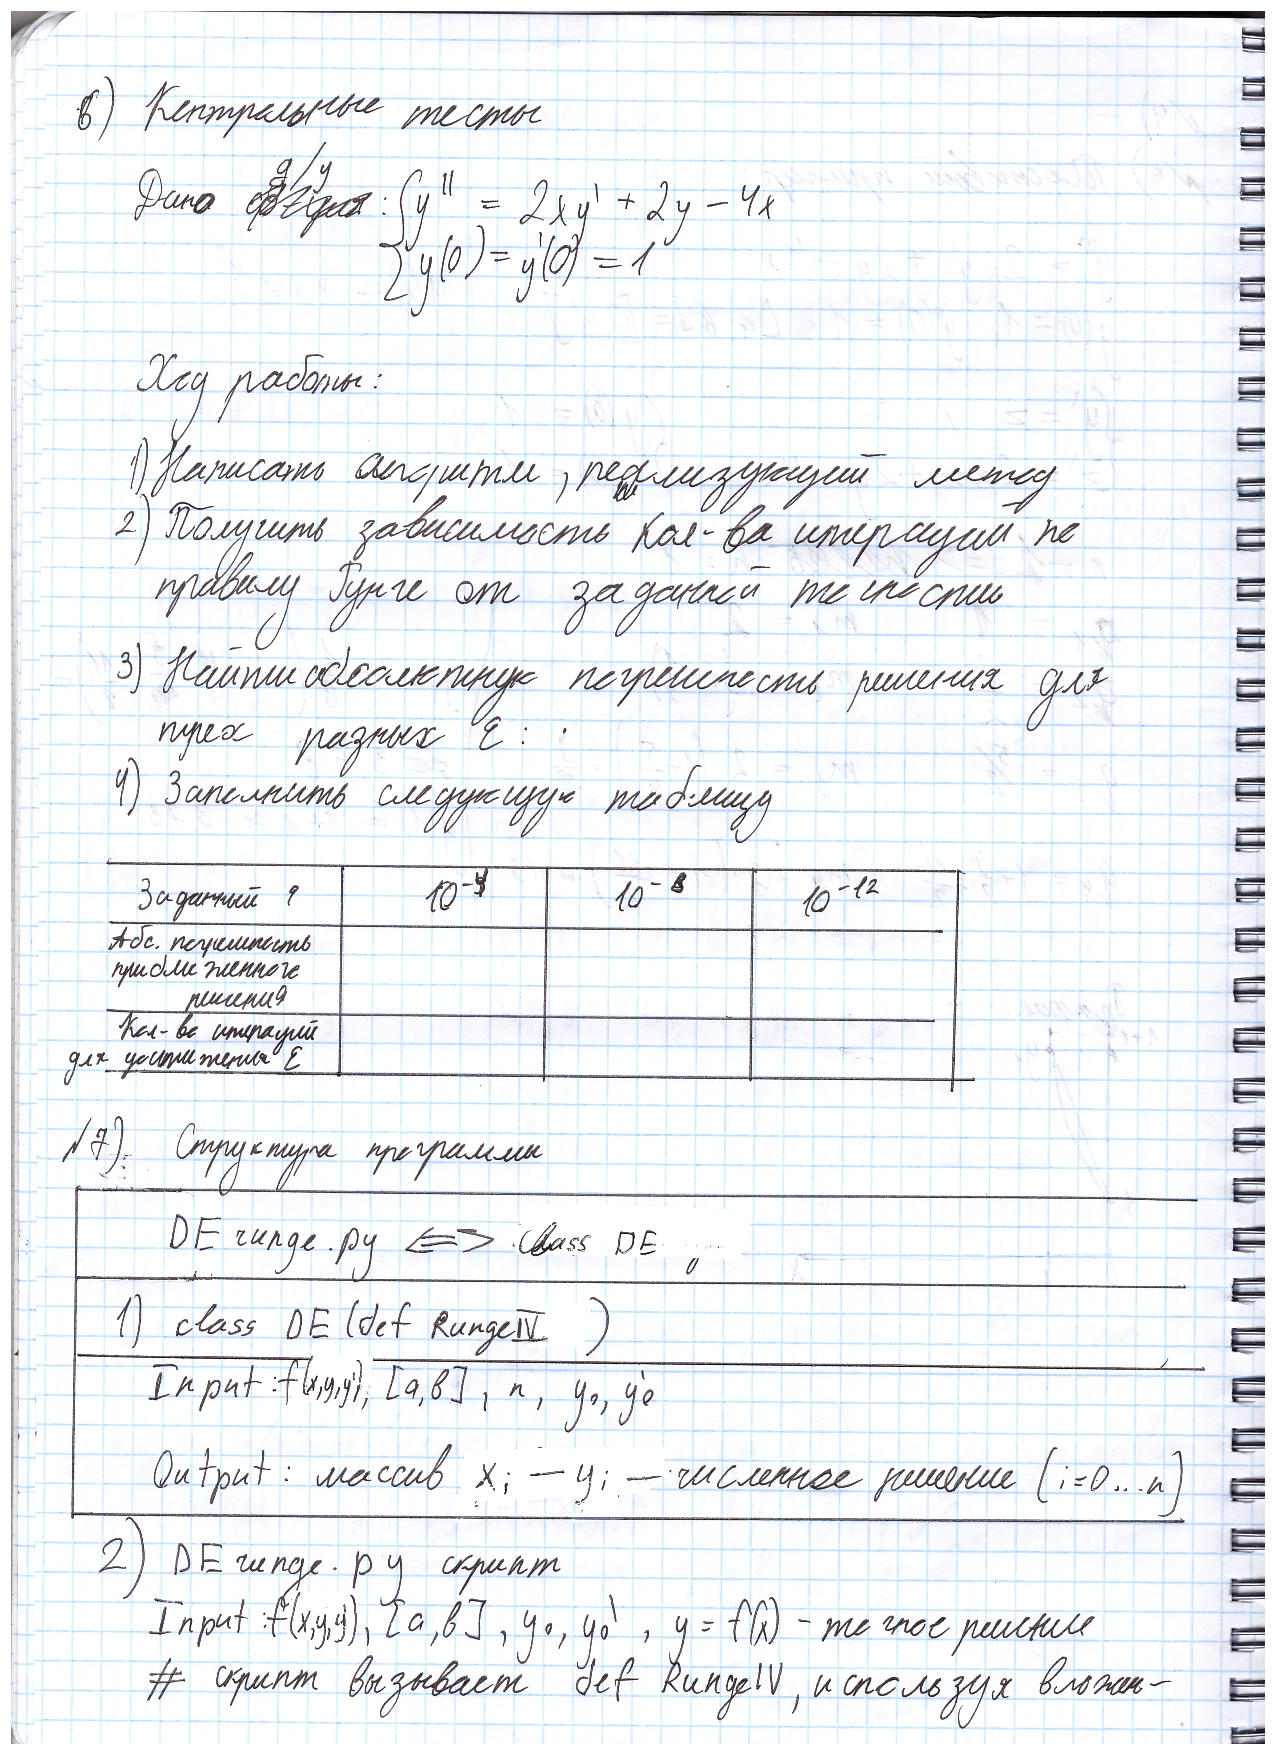 6) Контрольные тесты
д/у
Дано : { y'' = 2xy' + 2y - 4x
{ y(0) = y'(0) = 1
Ход работы:
1) Написать алгоритм, реализующий метод
2) Получить зависимость кол-ва итераций по
правилу Рунге от заданной точности
3) Найти абсолютную погрешность решения для
трех разных ε:
4) Заполнить следующую таблицу
Заданный ε 10^-4 10^-8 10^-12
Абс. погрешность
приближенного
решения
Кол-во итераций
для достижения ε
№7). Структура программы
DErunge.py <=> class DE
1) class DE (def RungeIV )
Input: f(x,y,y'), [a,b], n, y₀, y'₀
Output: массив xᵢ — yᵢ — численное решение (i=0...n)
2) DErunge.py скрипт
Input: f(x,y,y'), [a,b], y₀, y₀', y = f(x) - точное решение
# скрипт вызывает def RungeIV, используя вложен-